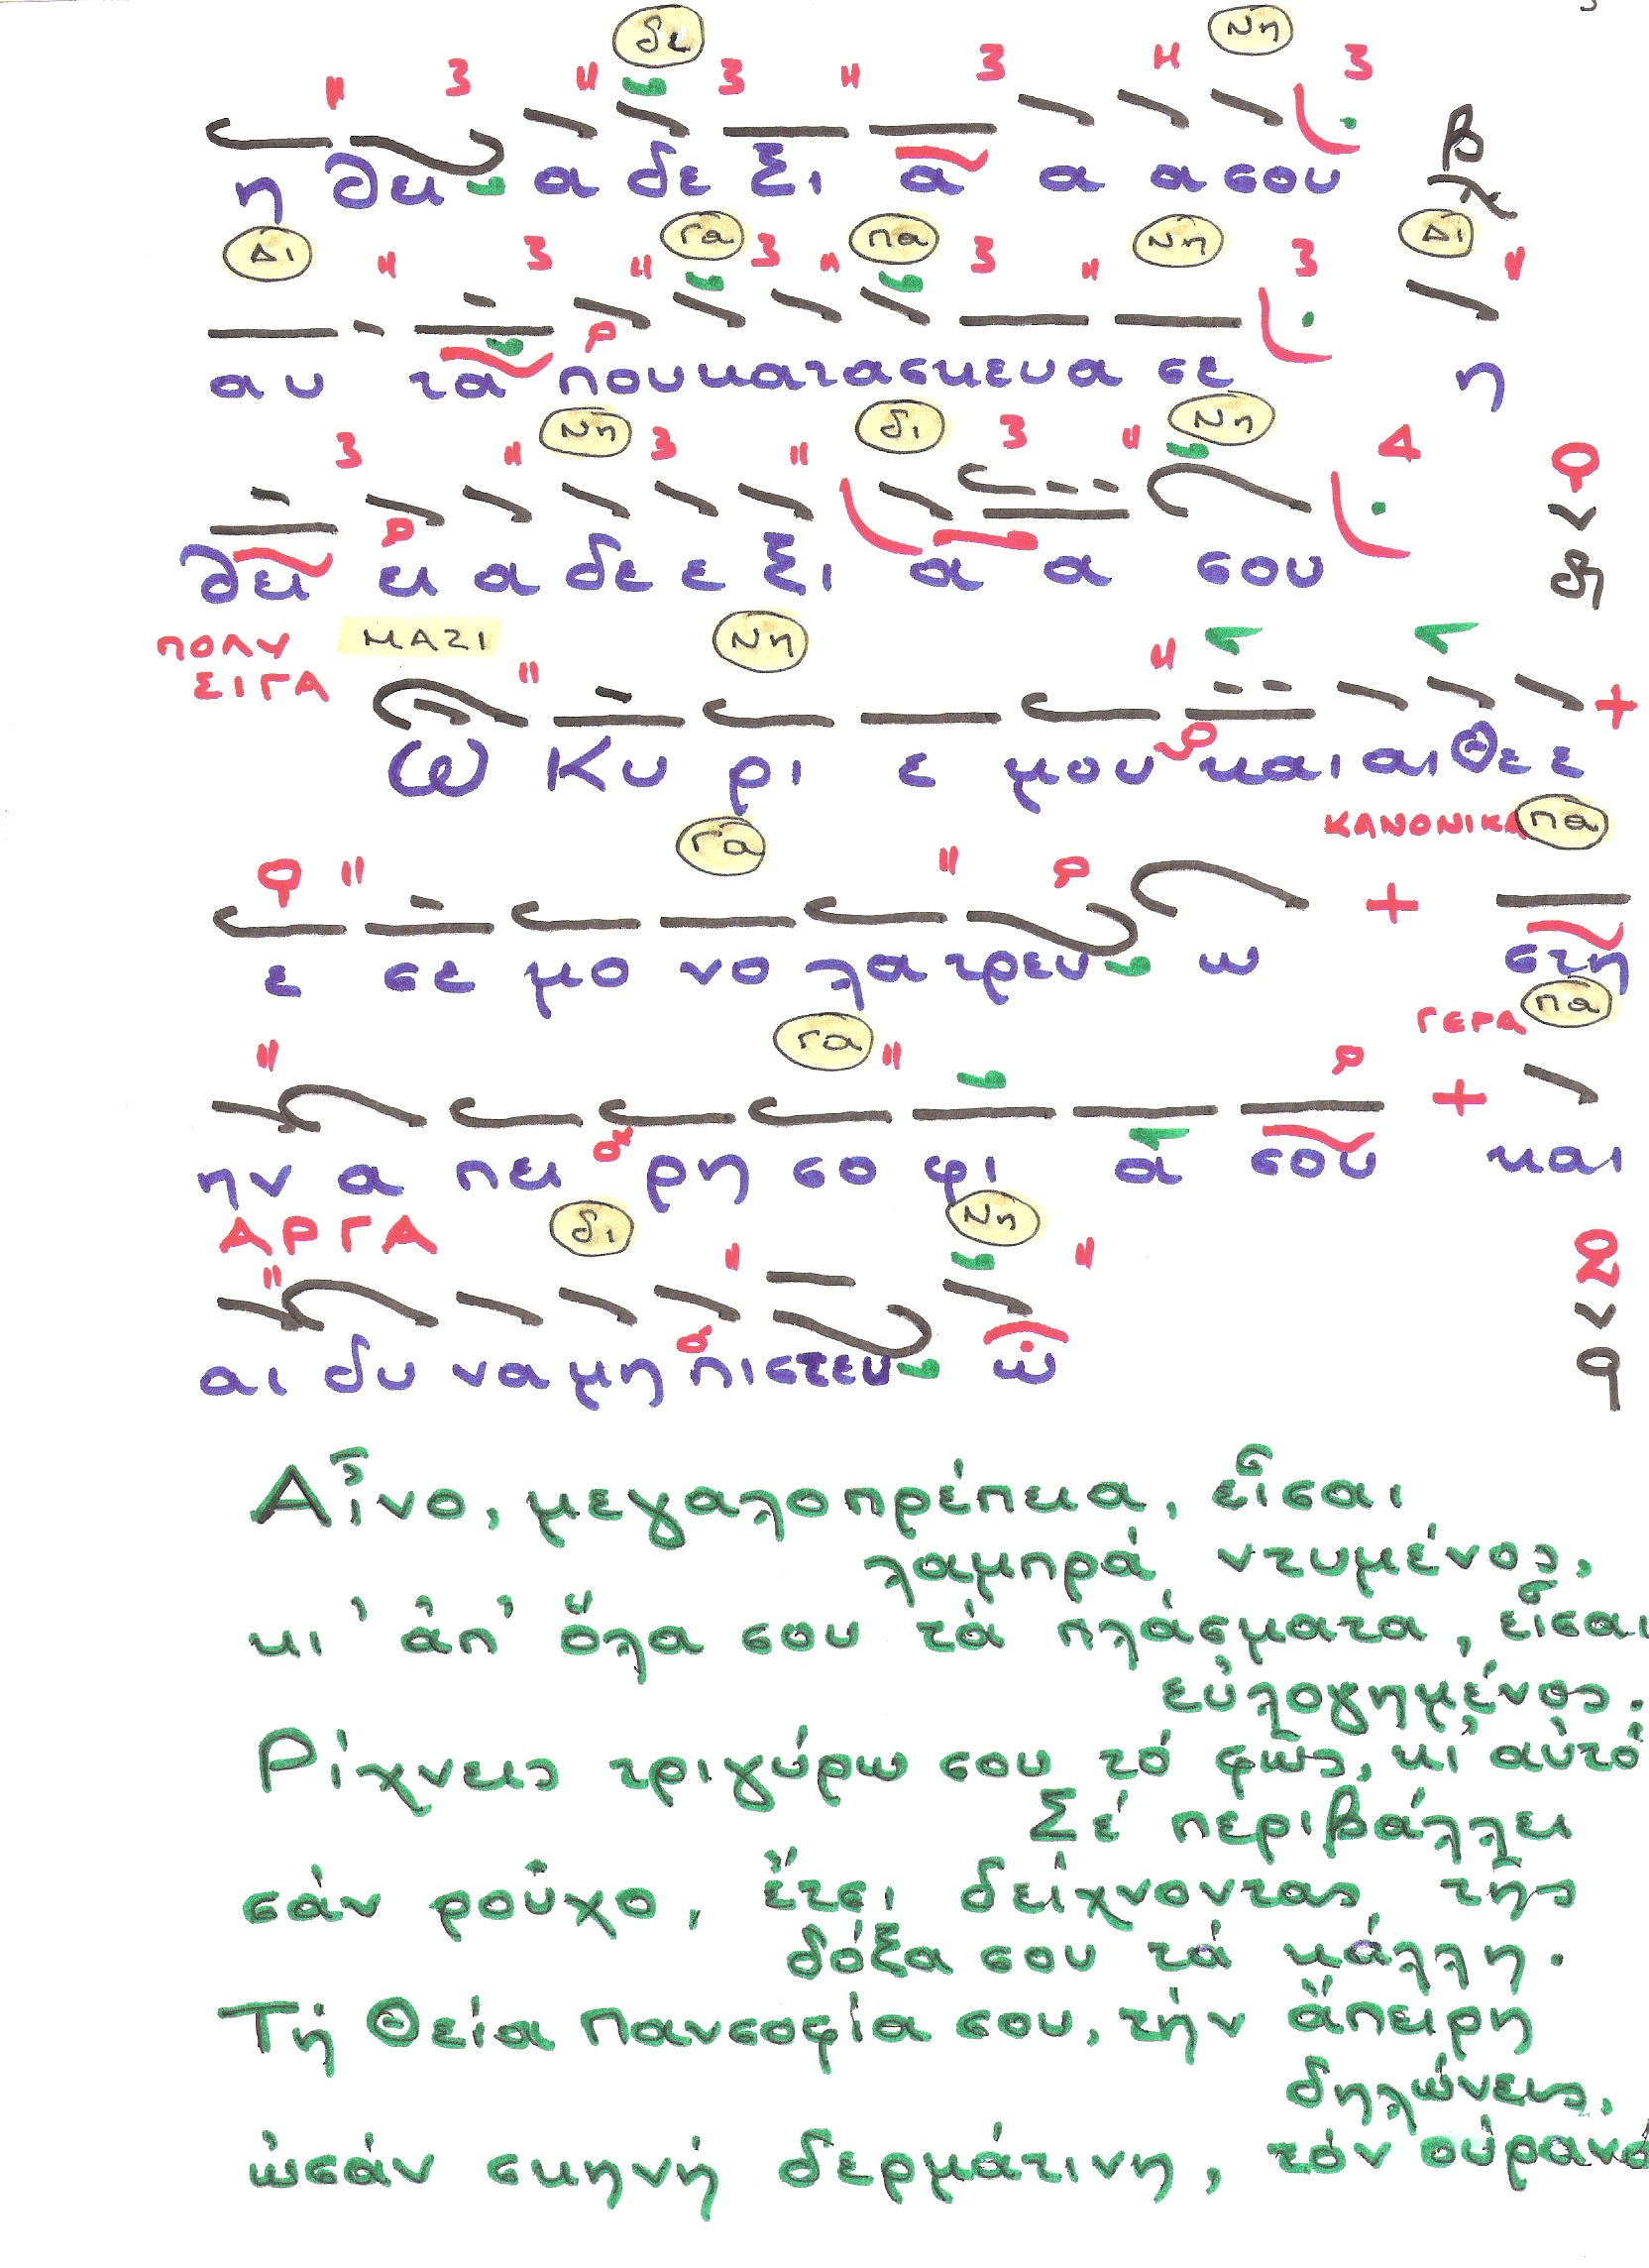 δι Νη
η θει α δε ξι α α α σου
Δι γα πα Νη Δι
αυ τα που κα τα σκευ α σε η
Νη δι Νη
θει ει α δε ε ξι α α σου
ΠΟΛΥ ΣΙΓΑ ΜΑΖΙ Νη
Ω Κυ ρι ε μου και αι Θε ε
γα ΚΑΝΟΝΙΚΑ πα
ε σε μο νο λα τρευ ω στη
γα ΓΕΡΑ πα
ην α πει ρη σο φι α σου και
ΑΡΓΑ δι Νη
αι δυ να μη πιστευ ω
Αἶνο, μεγαλοπρέπεια, εἶσαι
λαμπρά ντυμένος,
κι ἀπ' ὅλα σου τά πλάσματα, εἶσαι
εὐλογημένος.
Ρίχνεις τριγύρω σου τό φῶς, κι αὐτό
Σέ περιβάλλει
σάν ροῦχο, ἔτσι δείχνοντας τῆς
δόξα σου τά κάλλη.
Τή Θεία Πανσοφία σου, τήν ἄπειρη
δηλώνεις,
ὡσάν σκηνή δερμάτινη, τόν οὐρανό